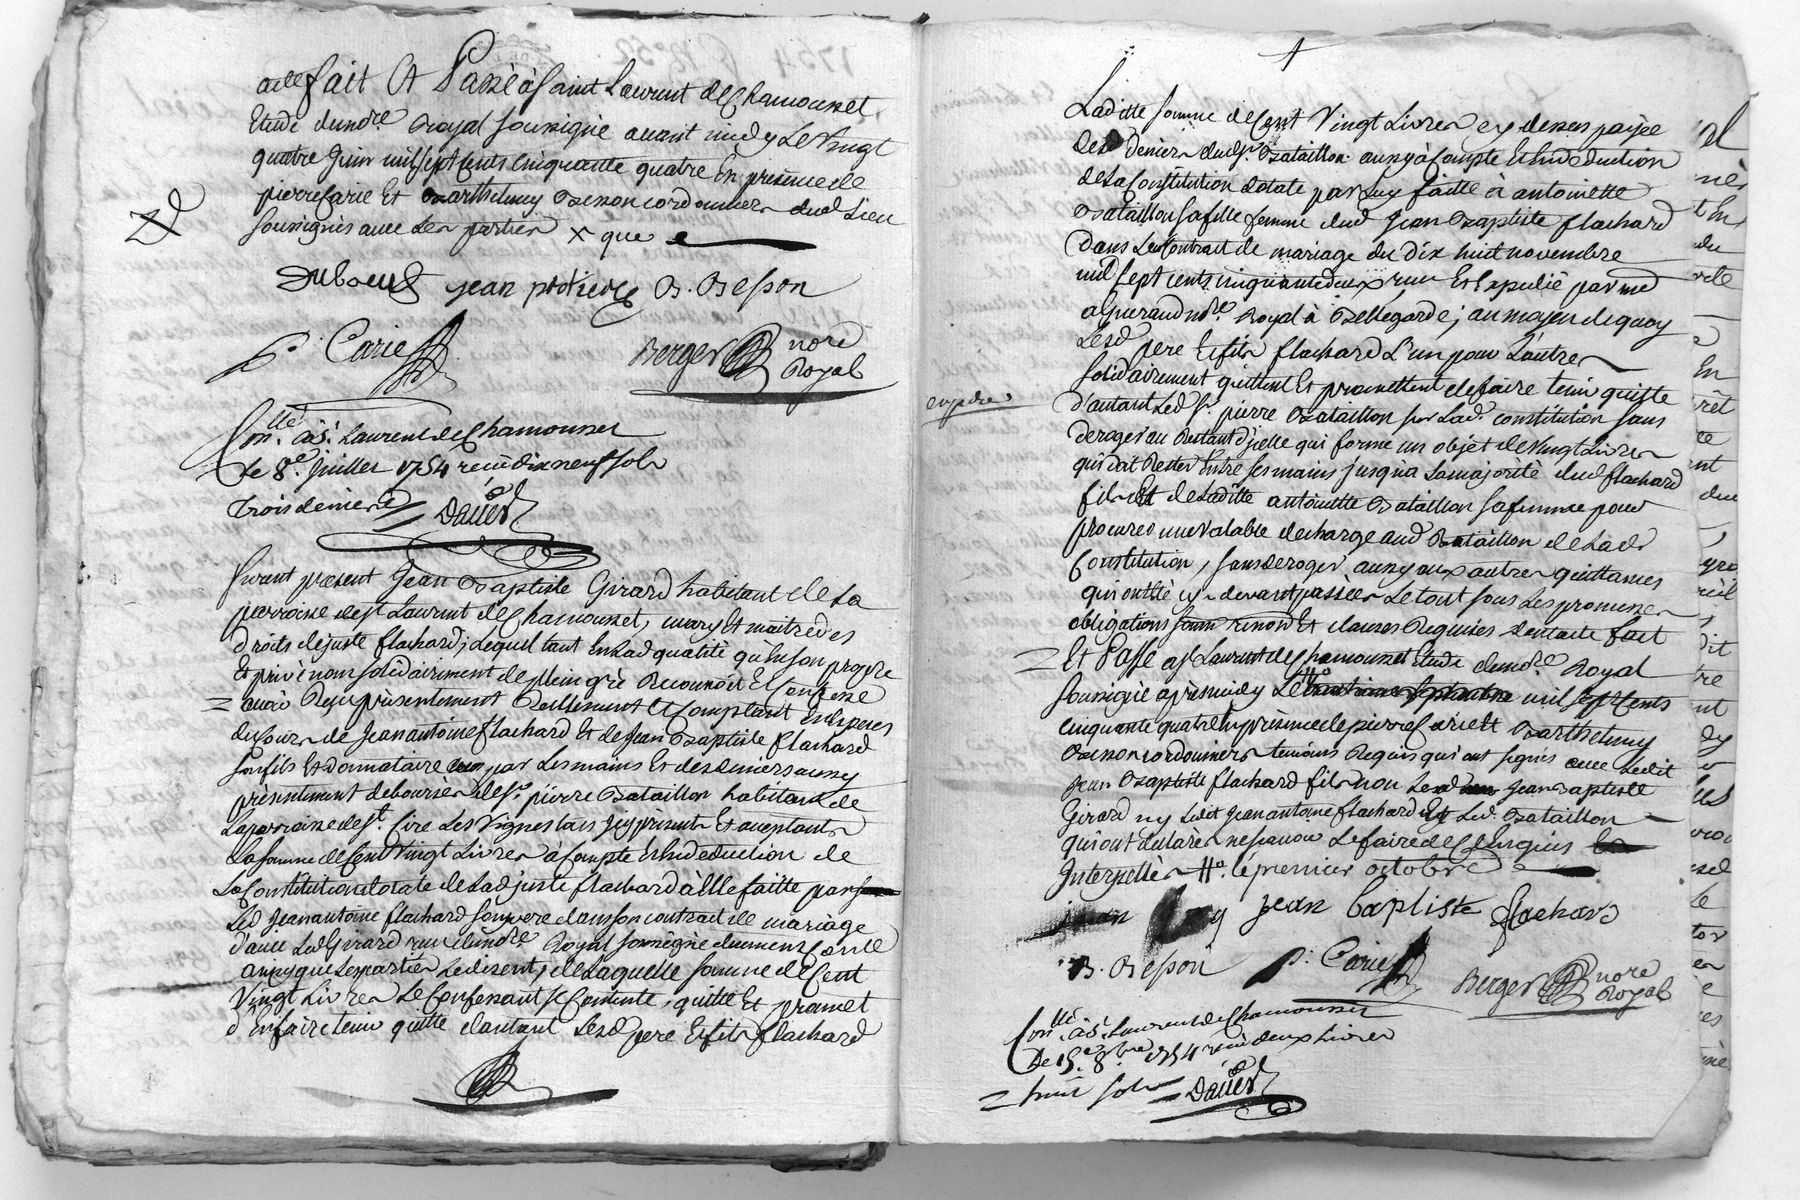 fait Et Passé à Saint Laurent de Chamousset
Etude dudnore Royal soussigné avant midy Le Vingt
quatre Juin mil sept cents cinquante quatre En présence de
pierre Carie Et Barthelmy Besson cordonniers dud Lieu
soussignés avec Les parties × que
Dubœuf jean B. Besson
P. Carie Berger nore Royal
Conllé à St. Laurent de Chamousset
Le 8e. Juillet 1754 reçu dix neuf sols
trois deniers Daüer
Furent present Jean Baptiste Girard habitant de La
parroisse de st Laurent de Chamousset, mary Et maitre des
droits de juste flachard; Lequel tant En Lad qualité qu'En son propre
Et privé nom solidairement de plein gré Reconnoit Et Confesse
avoir Reçu présentement Reellement Et Comptant En Especes
du Cours de Jean antoine flachard Et de Jean Baptiste flachard
son fils Et donnataire par Les mains Et des deniers aussy
présentement deboursés de Sr. pierre Bataillon habitant de
La parroisse de st. Cire Les Vignes Icy présent Et acceptant
La somme de Cent Vingt Livres à Compte Et En deduction de
La Constitution dotale de Lad juste flachard à Elle faitte par
Led Jean antoine flachard son pere dans son contrat de mariage
d'avec Led Girard reçu dudnore Royal soussigné duement Conllé
ainsy que Les parties Le disent, de Laquelle somme de Cent
Vingt Livres Le Confessant se Contente, quitte Et promet
d'En faire tenir quitte dautant Lesd pere Et fils flachard
Laditte somme de Cent Vingt Livres cy dessus payée
des deniers dud Sr. Bataillon aussy à Compte Et En deduction
de La Constitution dotale par Luy faitte à antoinette
Bataillon sa fille femme dud Jean Baptiste flachard
dans Le Contrat de mariage du dix huit novembre
mil sept cents cinquante deux reçu Et Expedié par me
aGueraud nore Royal à Bellegarde; au moyen de quoy
Lesd pere Et fils flachard L'un pour L'autre
solidairement quittent Et promettent de faire tenir quitte
d'autant Led Sr. pierre Bataillon sur Lad. constitution sans
deroger au Restant d'icelle qui forme un objet de Vingt Livres
qui doit Rester Entre ses mains jusqu'a La majorité dud flachard
fils Et de Laditte antoinette Bataillon sa femme pour
procurer une valable decharge aud Bataillon de Lad
Constitution, sans deroger aussy aux autres quittances
qui ont Eté cy devant passées Le tout sous Les promesses
obligations renon Et clauses Requises dont acte fait
Et Passé à St Laurent de Chamousset Etude dudnore Royal
soussigné après midy Le mil sept Cents
cinquante quatre En présence de pierre Carie Et Barthelmy
Besson cordonniers temoins Requis qui ont signés avec Ledit
Jean Baptiste flachard fils non Led Jean Baptiste
Girard ny Ledit Jean antoine flachard Et Led. Bataillon
qui ont declarés ne savoir Le faire de ce Enquis
Interpellés #o. Le premier octobre
jean Baptiste flachard
B. Besson P. Carie Berger nore Royal
Conllé à St Laurent de Chamousset
Le 15e. 8bre 1754 reçu deux Livres
huit sols Daüer